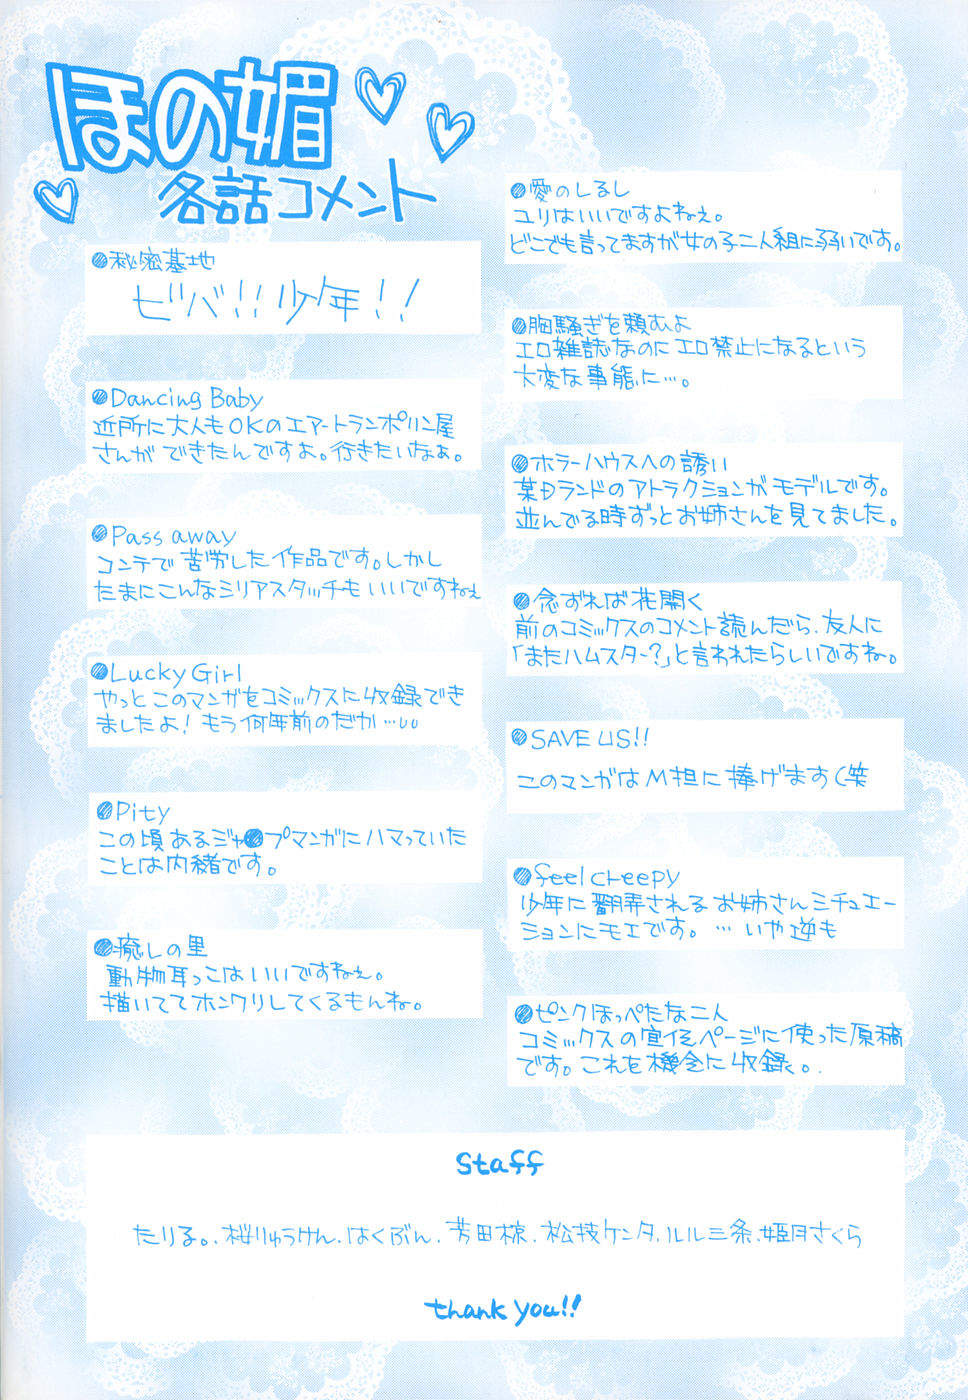 ほの媚
各話コメント
●秘密基地
ビバ!!少年!!
●Dancing Baby
近所に大人もOKのエアートランポリン屋
さんができたんですよ。行きたいなぁ。
●Pass away
コンテで苦労した作品です。しかし
たまにこんなシリアスタッチもいいですねぇ
●Lucky Girl
やっとこのマンガをコミックスに収録でき
ましたよ!もう何年前のだか…
●Pity
この頃あるジャ●プマンガにハマっていた
ことは内緒です。
●癒しの里
動物耳っこはいいですねぇ。
描いててホンワリしてくるもんね。
●愛のしるし
ユリはいいですよねぇ。
どこでも言ってますが女の子二人組に弱いです。
●胸騒ぎを頼むよ
エロ雑誌なのにエロ禁止になるという
大変な事態に…。
●ホラーハウスへの誘い
某Dランドのアトラクションがモデルです。
並んでる時ずっとお姉さんを見てました。
●念ずれば花開く
前のコミックスのコメント読んだら、友人に
「またハムスター?」と言われたらしいですね。
●SAVE US!!
このマンガはM担に捧げます(笑
●feel creepy
少年に翻弄されるお姉さんシチュエー
ションにモエです。…いや逆も
●ピンクほっぺたな二人
コミックスの宣伝ページに使った原稿
です。これを機会に収録。
Staff
たりる。、桜りゅうけん、はくぶん、芳田椋、松枝ケンタ、ルル三条、姫月さくら
thank you!!